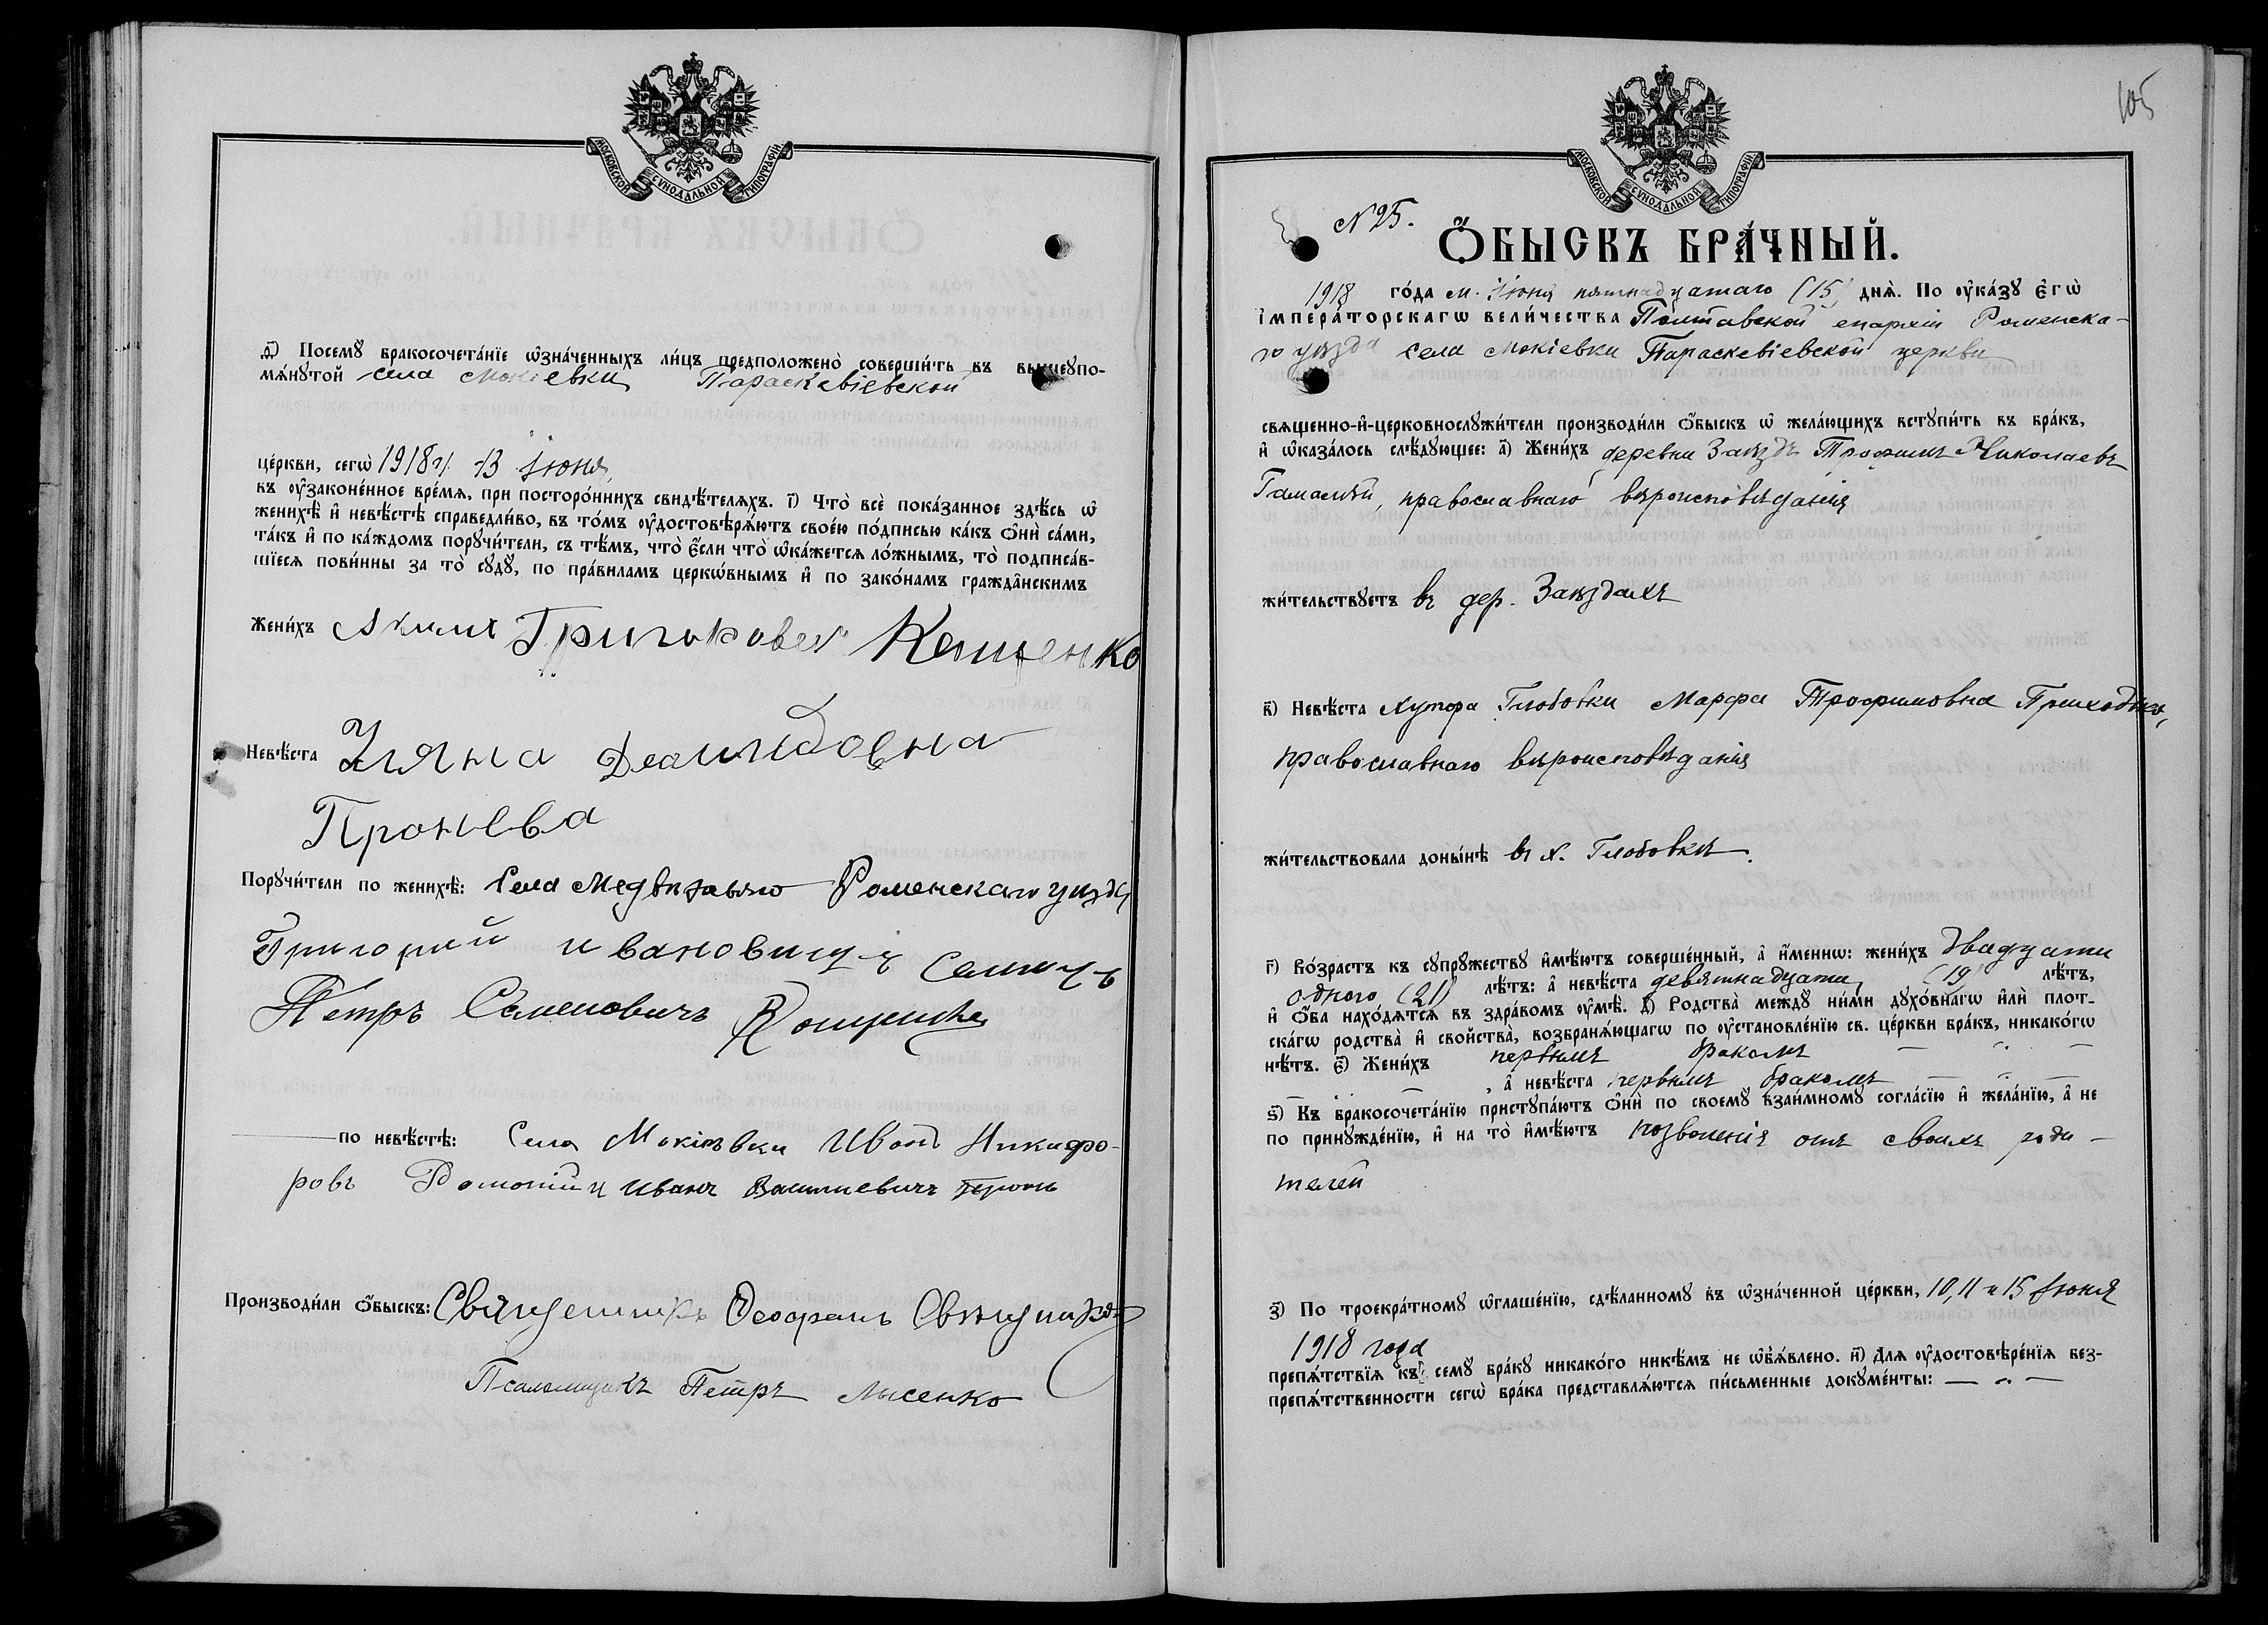 МОСКОВСКОЙ СѴНОДАЛЬНОЙ ТИПОГРАФІИ
ѳ҃) Посемꙋ̀ бракосочета́нїе ѡ҆зна́ченныхъ ли́цъ предположено̀ соверши́ть въ вышеупо-
мѧ́нꙋтой села Мокіевки Параскевіевской
це́ркви, сегѡ̀ 1918 г. 13 Іюня
къ ᲂу҆законе́нное вре́мѧ, при посторо́ннихъ свидѣ́телѧхъ. і҃) Что̀ всѐ пока́занное здѣ́сь ѡ҆
женихѣ̀ и҆ невѣ́стѣ справедли́во, въ то́мъ ᲂу҆достовѣрѧ́ютъ свое́ю по́дписью ка́къ ѻ҆нѝ са́ми,
та́къ и҆ по ка́ждомъ порꙋчи́тели, съ тѣ́мъ, что̀ є҆́сли что̀ ѡ҆ка́жетсѧ ло́жнымъ, то̀ подписа́в-
шїесѧ пови́нны за то̀ сꙋдꙋ̀, по пра́виламъ церкѡ́внымъ и҆ по зако́намъ гражда̂нскимъ
Жени́хъ Акимъ Григоровъ Кащенко
Невѣ́ста Уляна Демидовна
Пронева
Порꙋчи́тели по женихѣ̀: Села Медвѣжьяго Роменскаго уѣзда
Григорий ивановичъ
Петръ Семеновичъ
по невѣ́стѣ: Села Мокіевки Иванъ Никифо-
ровъ Иванъ Василиевичъ
Производи́ли ѻ҆́быскъ: Священникъ Ѳеофанъ
Псаломщикъ Петръ Лысенко
105
МОСКОВСКОЙ СѴНОДАЛЬНОЙ ТИПОГРАФІИ
N 25.
Ѻ҆́БЫСКЪ БРА́ЧНЫЙ.
1918 го́да м. Іюня пятнадцатаго (15) днѧ̀. По ᲂу҆ка́зꙋ є҆гѡ̀
і҆мпера́торскагѡ вели́чества Полтавской епархіи Роменска-
го уѣзда села Мокіевки Параскевіевской церкви
свѧщенно-и҆-церковнослꙋжи́тели производи́ли ѻ҆́быскъ ѡ҆ жела́ющихъ встꙋпи́ть въ бра́къ,
и҆ ѡ҆каза́лось слѣ́дꙋющее: а҃) Жени́хъ деревни Заѣздъ Трофимъ Николаевъ
Гамалѣй, православнаго вѣроисповѣданія
жи́тельствꙋетъ въ дер. Заѣздахъ
в҃) Невѣ́ста хутора Глобовки Марфа Трофимовна Приходько,
православнаго вѣроисповѣданія
жи́тельствовала доны́нѣ въ х. Глобовкѣ.
г҃) Во́зрастъ къ сꙋпрꙋ́жествꙋ и҆мѣ́ютъ соверше́нный, а҆ и҆́менно: жени́хъ двадцати
одного (21) лѣ́тъ: а҆ невѣ́ста девятнадцати (19) лѣ́тъ,
и҆ ѻ҆́ба нахо́дѧтсѧ въ здра́вомъ ᲂу҆мѣ̀. д҃) Родства̀ междꙋ̀ ни́ми дꙋхо́внагѡ и҆лѝ плот-
ска́гѡ родства̀ и҆ свойства̀, возбранѧ́ющагѡ по ᲂу҆становле́нїю св. це́ркви бра́къ, никако́гѡ
нѣ́тъ. є҃) Жени́хъ первымъ бракомъ — „ —
— „ —, а҆ невѣ́ста первымъ бракомъ — „ —
ѕ҃) Къ бракосочета́нїю пристꙋпа́ютъ ѻ҆нѝ по своемꙋ̀ взаи́мномꙋ согла́сїю и҆ жела́нїю, а҆ не
по принꙋжде́нїю, и҆ на то̀ и҆мѣ́ютъ позволенія отъ своихъ роди-
телей
з҃) По троекра́тномꙋ ѡ҆глаше́нїю, сдѣ́ланномꙋ въ ѡ҆зна́ченной це́ркви, 10, 11 и 15 Іюня
1918 года
препѧ́тствїѧ къ семꙋ̀ бра́кꙋ никако́го никѣ́мъ не ѡ҆бъѧ́влено. и҃) Длѧ ᲂу҆достовѣре́нїѧ без-
препѧ́тственности сегѡ̀ бра́ка представлѧ́ютсѧ пи́сьменные докꙋме́нты: — „ —